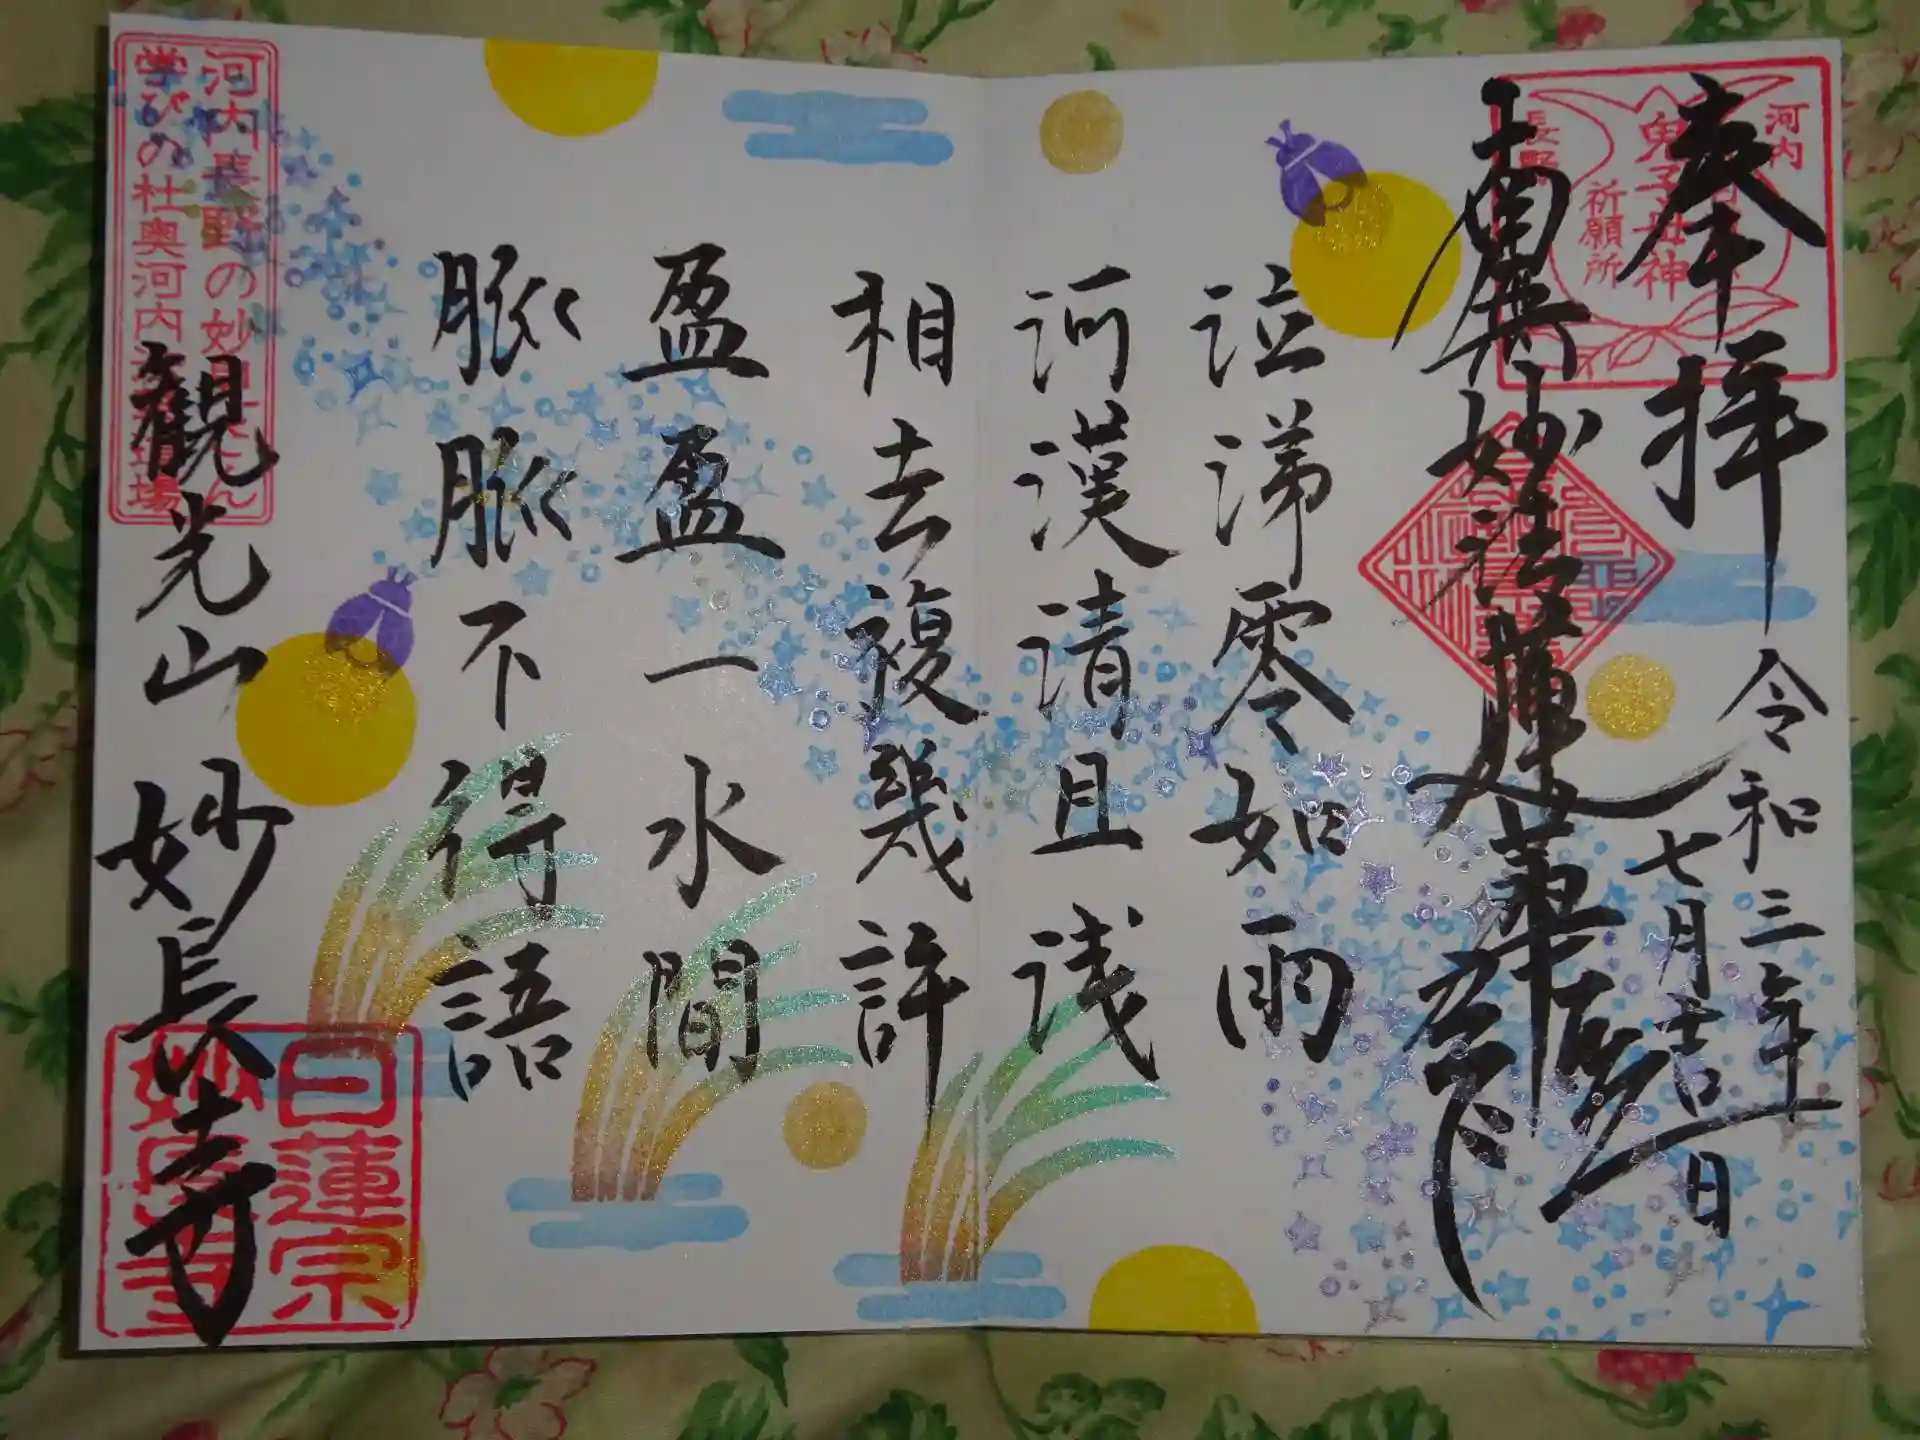 奉拝
令和三年
七月吉日
河内
長野
鬼子母神
祈願所
南無妙法蓮華経
泣涕零如雨
河漢清且浅
相去複幾許
盈盈一水間
脈脈不得語
河内長野の妙
学びの杜奥河内
道場
観光山妙長寺
日蓮宗
妙長寺